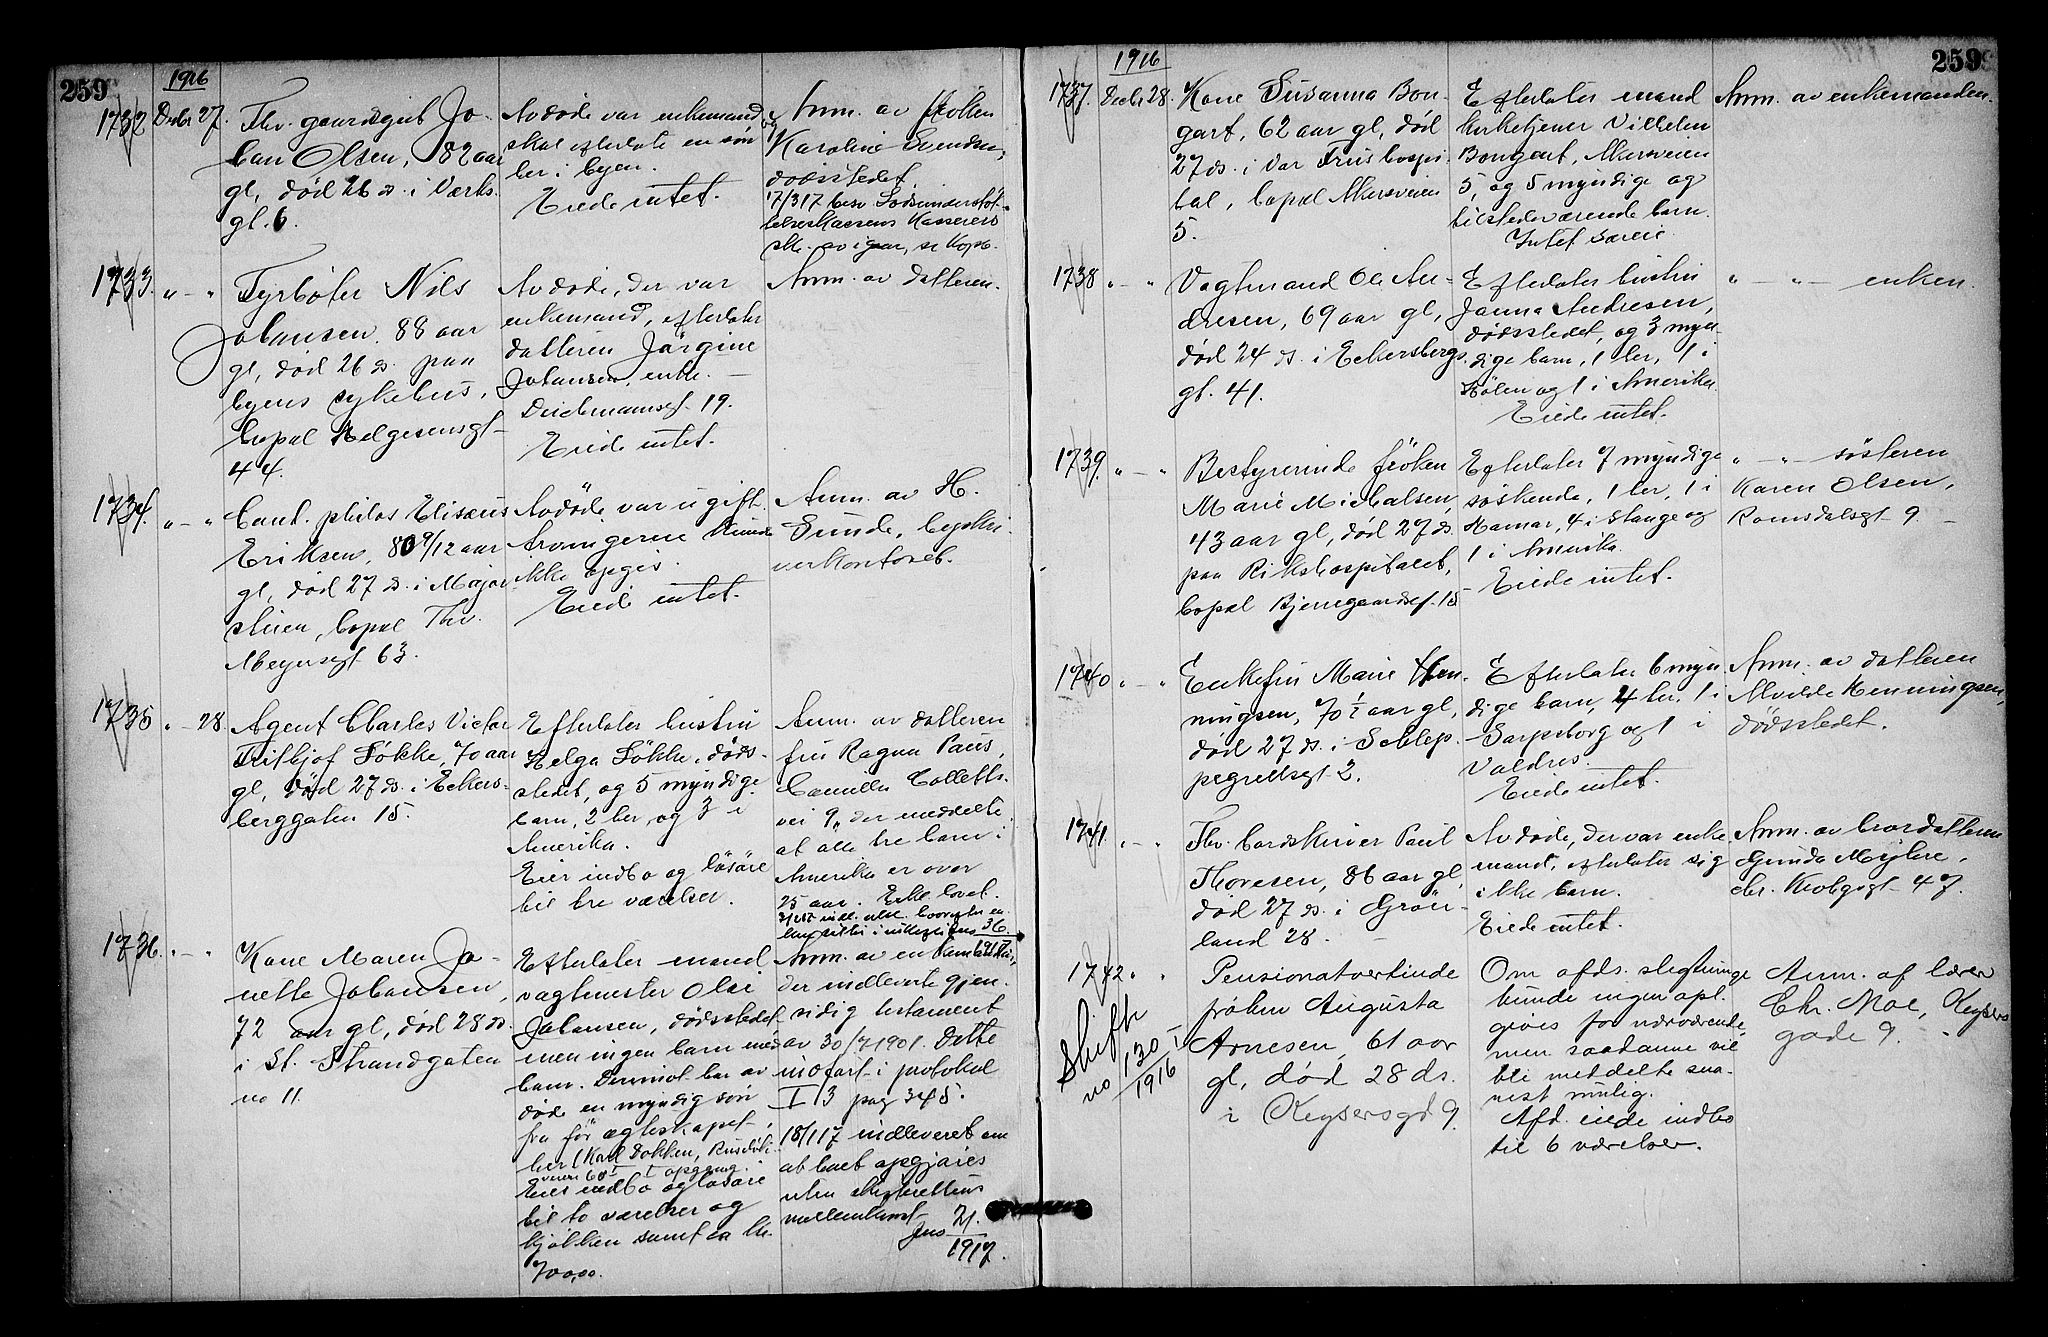 259
1916
1732 Decbr 27.
Fhv. gaardsgut Jo-
han Olsen, 82 aar
gl, død 26 ds. i Verks.
gt. 6.
Avdøde var enkemand og
skal efterlate en søn
her i byen.
Eiede intet.
Anm. av frøken
Karoline Svendsen,
dødsstedet
17/3 17 besv Sødsunderstøt-
telseskassens Kasserers
skr. av igaar, se Kopb.
1733. " - "
Fyrbøter Nils
Johansen, 88 aar
gl, død 26 ds. paa
byens sykehus,
bopæl Helgesensgt
44.
Avdøde, der var
enkemand, efterlater
datteren Jørgine
Johansen, enke.
Deichmansgt. 19.
Eiede intet.
Anm. av datteren.
1734. " - "
Cand. philos Elisæus
Eriksen, 80 9/12 aar
gl, død 27 ds. i Major-
stuen, bopæl Thv.
Meyersgt 63.
Avdøde var ugift.
Arvingerne kunde
ikke opgis.
Eiede intet.
Anm. av H.
Sunde, byskri-
verkontoret.
1735 " - 28.
Agent Charles Victor
Fritjof Løkke, 70 aar
gl, død 27 ds. i Eckers-
berggaten 15.
Efterlater hustru
Helga Løkke, døds-
stedet, og 5 myndige
barn, 2 her, og 3 i
Amerika.
Eier indbo og løsøre
til tre værelser.
Anm. av datteren
fru Ragna Paus,
Camilla Colletts.
vei 9, der meddelte
at alle tre barn i
Amerika er over
25 aar. Enke lovet.
36.
1736. " - "
Kone Maren Jo-
nette Johansen,
72 aar gl, død 28 ds.
i St. Strandgaten
no 11.
Efterlater mand
vagtmester Olai
Johansen, dødsstedet
men ingen barn med
ham. Derimot har av
døde en myndig søn
fra før ægteskapet,
her (Karl Dokken, Rusdøl
veien 60 I I opgang.
Eier indbo og løsøre
til to værelser og
kjøkken samt ca kr.
7000,00.
Anm. av en
der indleverte gjen-
sidig testament
av 30/7 1901. Dette
indført i protokol
I 3 pag 345.
18/1 17 indleveret
at boet opgjøres
uten skifterettens
mellemkomst
Jns 21.
1917.
1916
259
1737. Decbr 28.
Kone Susanna Bon-
gart, 62 aar gl, død
27 ds. i Vor Frus hospi
tal, bopæl Akersveien
5.
Efterlater mand
kirketjener Vilhelm
Bongart, Akersveien
5, og 5 myndige og
tilstedeværende barn.
Intet særeie.
Anm. av enkemanden.
1738 " - "
Vagtmand Ole An-
dresen, 69 aar gl,
død 24 ds. i Eckersbergs
gt. 41.
Efterlater hustru
Janna Andresen,
dødsstedet, og 3 myn-
dige barn, 1 her, 1 i
Hølen og 1 i Amerika.
Eiede intet.
" - " - enken.
1739. " - "
Bestyrerinde frøken
Marie Michalsen,
43 aar gl, død 27 ds.
paa Rikshospitalet,
bopæl Bjerregaardsgt. 15
Efterlater 7 myndige
søskende, 1 her, 1 i
Hamar, 4 i Stange og
1 i Amerika.
Eiede intet.
" - " - søsteren
Karen Olsen,
Romsdalsgt 9 -
1740 " - "
Enkefru Marie Hen-
ningsen, 70 1/2 aar gl,
død 27 ds. i Schlep-
pegrellsgt 2.
Efterlater 6 myn
dige barn, 4 her, 1 i
Sarpsborg og 1 i
Valdres.
Eiede intet.
Anm. av datteren
Alvilde Henningsen,
dødsstedet.
1741. " - "
Fhv. bordskriver Paul
Thoresen, 86 aar gl,
død 27 ds. i Grøn-
land 28. -
Avdøde, der var enke
mand, efterlater sig
ikke barn.
Eiede intet.
Anm. av brordatteren
Gunda Myhre,
chr. Krohgsgt 47.
1742 " "
Skifte
no 130 I
1916
Pensionatvertinde
frøken Augusta
Arnesen, 61 aar
gl, død 28 ds.
i Keysersgd 9.
Om afds. slegtninge
kunde ingen opl.
gives for nærværende,
men saadanne vil
bli meddelte sna-
rest mulig.
Afd. eiede indbo
til 6 værelser.
Anm. af lærer
Chr. Moe, Keysers
gade 9.